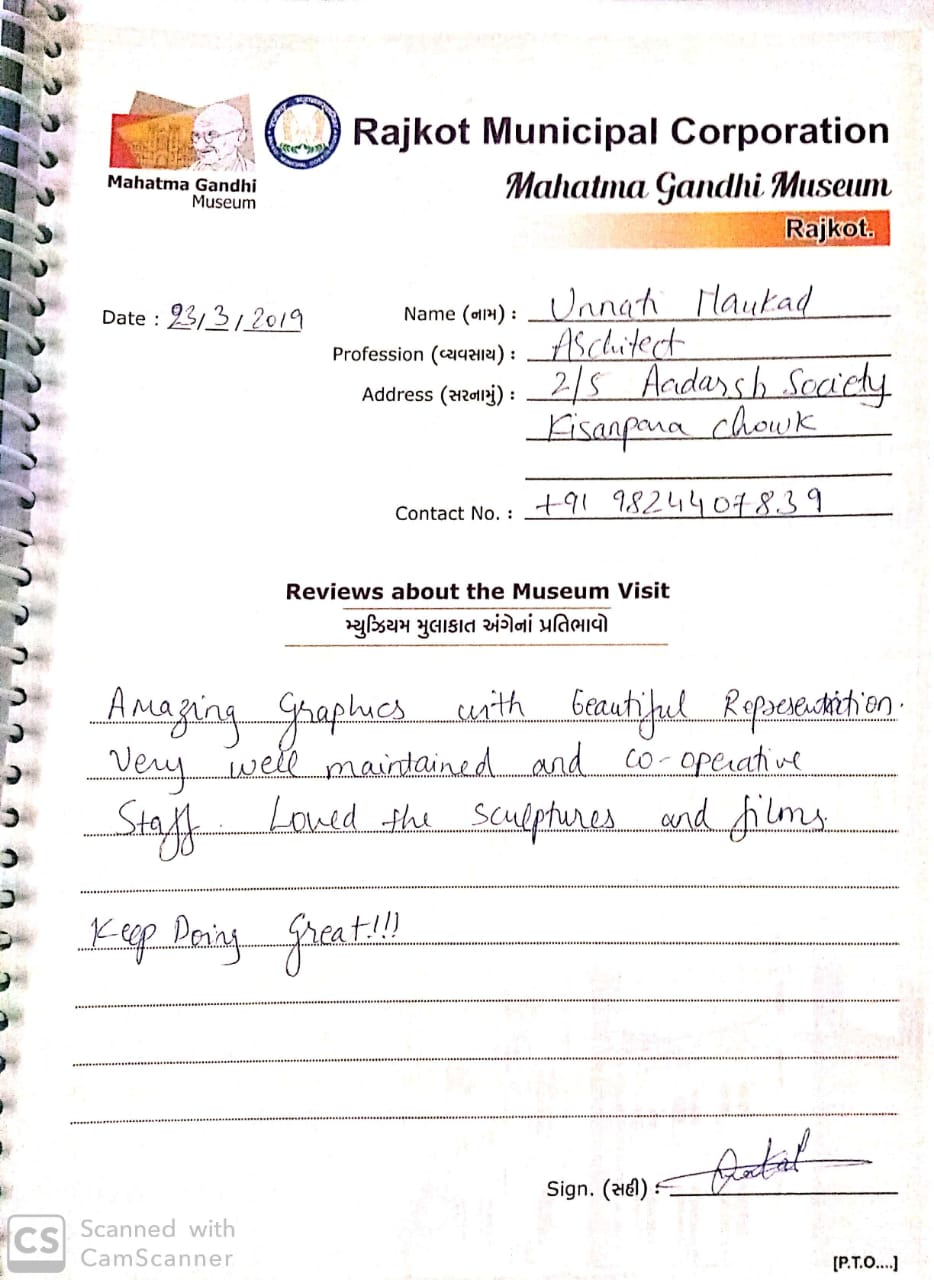 Rajkot Municipal Corporation
Mahatma Gandhi
Museum
Mahatma Gandhi Museum
Rajkot.
Date : 23/3/2019
Name (નામ) : Unnati Maukad
Profession (વ્યવસાય) : Architect
Address (સરનામું) : 2/5 Aadarsh Society
Kisanpara Chowk
Contact No. : +91 9824407839
Reviews about the Museum Visit
મ્યુઝિયમ મુલાકાત અંગેનાં પ્રતિભાવો
Amazing Graphics with beautiful Representation.
Very well maintained and co-operative
Staff. Loved the sculptures and films.
Keep Doing Great!!!
Sign. (સહી) :
CS Scanned with
CamScanner
[P.T.O....]